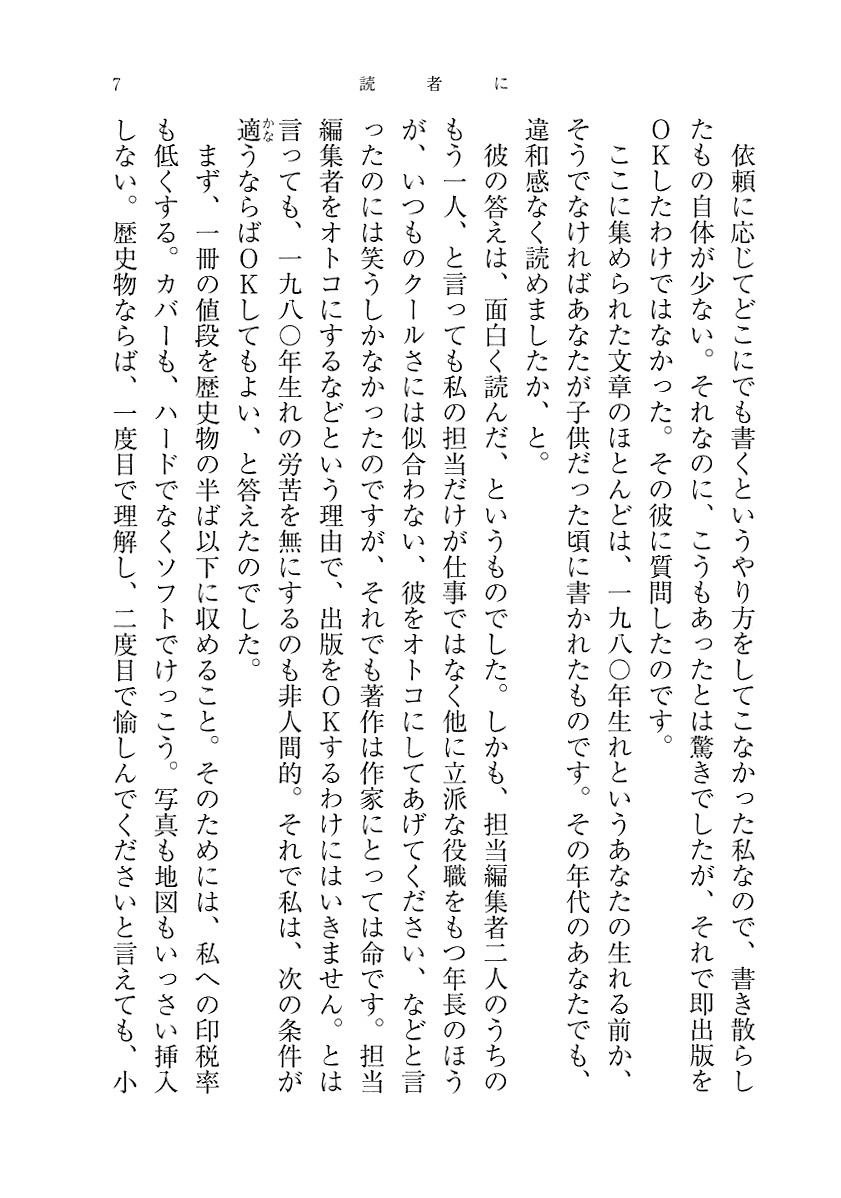 7
読者に
依頼に応じてどこにでも書くというやり方をしてこなかった私なので、書き散らし
たもの自体が少ない。それなのに、こうもあったとは驚きでしたが、それで即出版を
OKしたわけではなかった。その彼に質問したのです。
ここに集められた文章のほとんどは、一九八〇年生れというあなたの生れる前か、
そうでなければあなたが子供だった頃に書かれたものです。その年代のあなたでも、
違和感なく読めましたか、と。
彼の答えは、面白く読んだ、というものでした。しかも、担当編集者二人のうちの
もう一人、と言っても私の担当だけが仕事ではなく他に立派な役職をもつ年長のほう
が、いつものクールさには似合わない、彼をオトコにしてあげてください、などと言
ったのには笑うしかなかったのですが、それでも著作は作家にとっては命です。担当
編集者をオトコにするなどという理由で、出版をOKするわけにはいきません。とは
言っても、一九八〇年生れの労苦を無にするのも非人間的。それで私は、次の条件が
適うならばOKしてもよい、と答えたのでした。
かな
まず、一冊の値段を歴史物の半ば以下に収めること。そのためには、私への印税率
も低くする。カバーも、ハードでなくソフトでけっこう。写真も地図もいっさい挿入
しない。歴史物ならば、一度目で理解し、二度目で愉しんでくださいと言えても、小